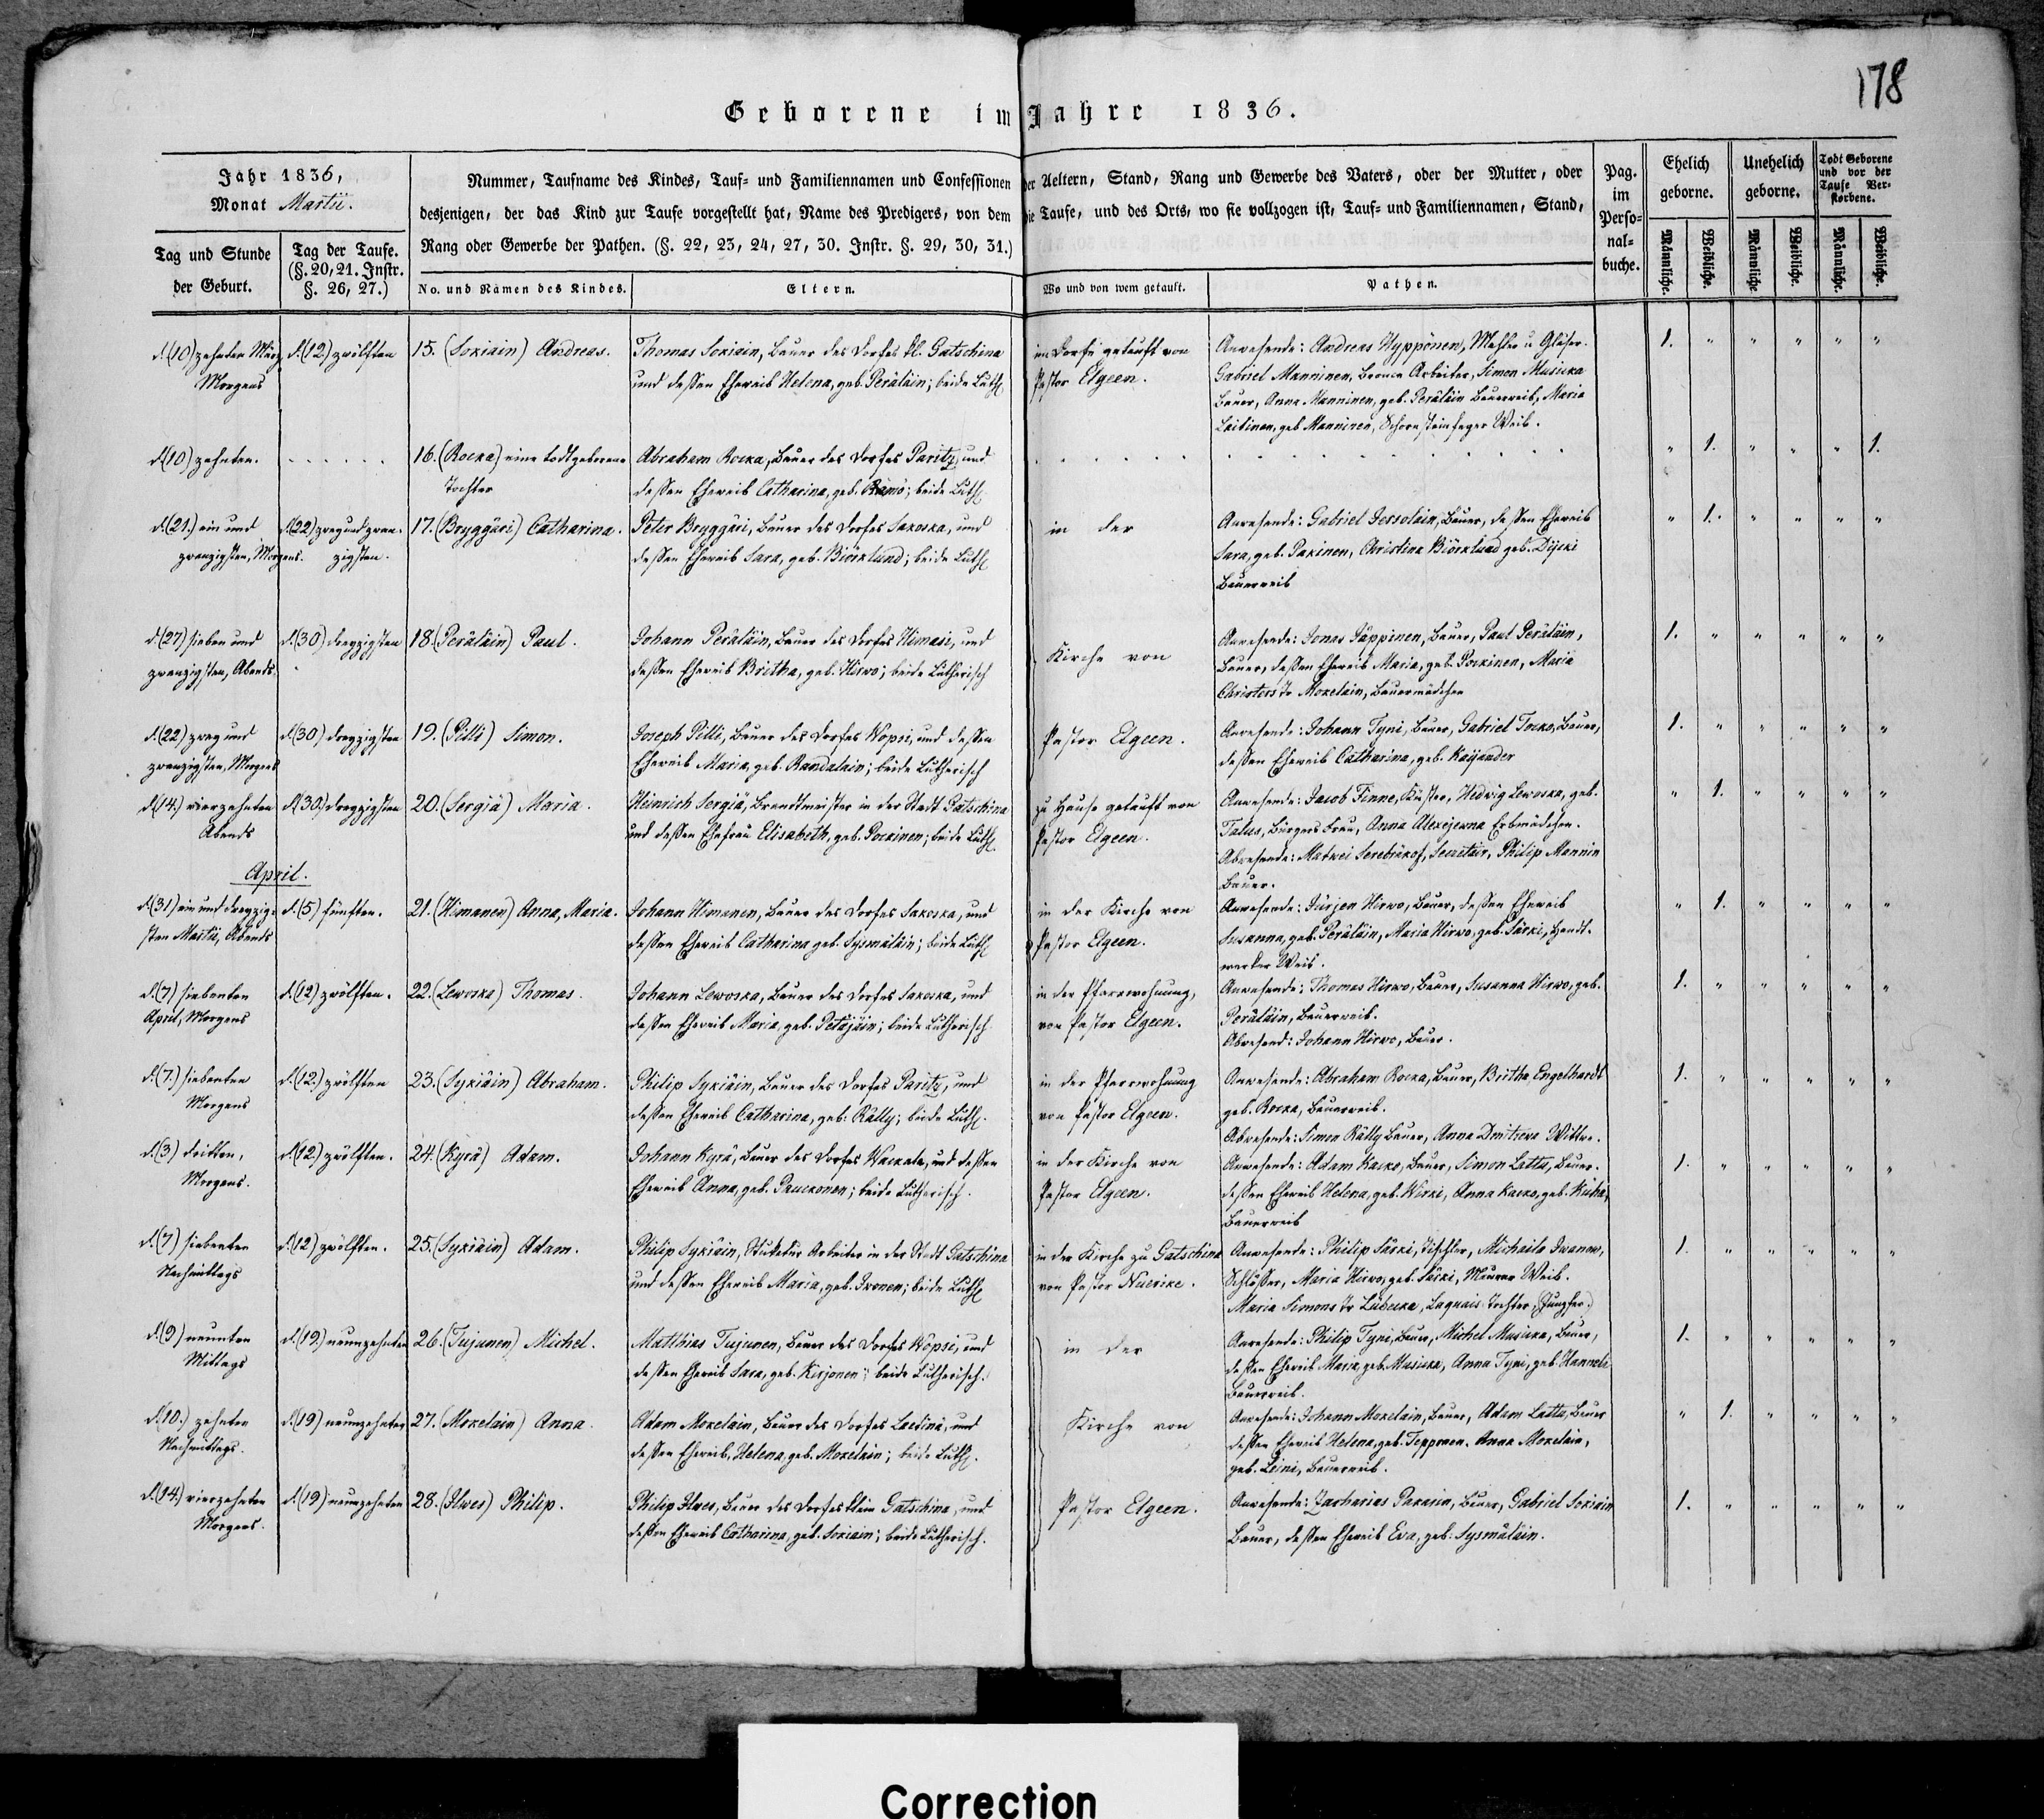 178
Geborene im Jahre 1836.
Jahr 1836,
Monat Martii.
Tag und Stunde der Geburt.
Tag der Taufe. (§. 20, 21. Instr. §. 26, 27.)
Nummer, Taufname des Kindes, Tauf- und Familiennamen und Confessionen der Aeltern, Stand, Rang und Gewerbe des Vaters, oder der Mutter, oder
desjenigen, der das Kind zur Taufe vorgestellt hat, Name des Predigers, von dem die Taufe, und des Orts, wo sie vollzogen ist, Tauf- und Familiennamen, Stand,
Rang oder Gewerbe der Pathen. (§. 22, 23, 24, 27, 30. Instr. §. 29, 30, 31.)
No. und Namen des Kindes.
Eltern.
Wo und von wem getauft.
Pathen.
Pag. im Perso-nal-buche.
Ehelich geborne.
Unehelich geborne.
Todt Geborene und vor der Taufe Ver-storbene.
Männliche. Weibliche. Männliche. Weibliche. Männliche. Weibliche.
d. (10) zehnten März Morgens
d. (12) zwölften
15. (Sokiain) Andreas.
Thomas Sokiain, Bauer des Dorfes Kl. Gatschina
und deßen Eheweib Helena, geb. Peräläin; beide Luth.
im Dorfe getauft von
Pastor Elgeen.
Anwesende: Andreas Hyppönen, Mahler u Gläser.
Gabriel Manninen, Bronce Arbeiter, Simon Musicka
Bauer, Anna Manninen, geb. Peräläin Bauerweib, Maria
Laitinen, geb Manninen, Schornsteinfeger Weib.
1. " " " " "
d. (10) zehnten.
16. (Rocka) eine todtgeborene
Tochter
Abraham Rocka, Bauer des Dorfes Paritz, und
deßen Eheweib Catharina, geb. Rämö; beide Luth.
" 1. " " " 1.
d. (21.) ein und
zwanzigsten, Morgens.
d. (22) zweyundzwan-
zigsten.
17. (Bryggäri) Catharina.
Peter Bryggäri, Bauer des Dorfes Sakoska, und
deßen Eheweib Sara, geb. Biörklund; beide Luth.
in der
Anwesende: Gabriel Jersolain, Bauer, deßen Eheweib
Sara, geb. Pakinen, Christina Biörklund geb. Dijcki
Bauerweib
" 1. " " " "
d. (27) sieben und
zwanzigsten, Abends.
d. (30) dreyzigsten
18. (Peräläin) Paul.
Johann Peräläin, Bauer des Dorfes Himasi, und
deßen Eheweib Britha, geb. Hirwo; beide Lutherisch
Kirche von
Anwesende: Jonas Päppinen, Bauer, Paul Peräläin,
Bauer, deßen Eheweib Maria, geb. Pockinen, Maria
Christers Tr Mokelain, Bauermädchen
1. " " " " "
d. (22) zwey und
zwanzigsten, Morgens
d. (30) dreyzigsten
19. (Pilli) Simon.
Joseph Pilli, Bauer des Dorfes Wopsi, und deßen
Eheweib Maria, geb. Randalain; beide Lutherisch
Pastor Elgeen.
Anwesende: Johann Tyni, Bauer, Gabriel Tocko, Bauer,
deßen Eheweib Catharina, geb. Kajander
1. " " " " "
d. (14.) vierzehnten
Abends
d. (30.) dreyzigsten
20. (Sergiä) Maria.
Heinrich Sergiä, Brandtmeister in der Stadt Gatschina
und deßen Ehefrau Elisabeth, geb. Pockinen; beide Luth.
zu Hause getauft von
Pastor Elgeen.
Anwesende: Jacob Finne, Küster, Hedwig Lewoska, geb.
Talus, Bürgers Frau, Anna Alexejewna Erbmädchen.
Abwesende: Matwei Serebräkof, Secretair, Philip Mannin
Bauer.
" 1. " " " "
April.
d. (31) ein und dreyzig-
sten Martii, Abends
d. (5) fünften.
21. (Himanen) Anna, Maria.
Johann Himanen, Bauer des Dorfes Sakoska, und
deßen Eheweib Catharina geb. Sysmäläin; beide Luth.
in der Kirche von
Pastor Elgeen.
Anwesende: Jürjen Hirwo, Bauer, deßen Eheweib
Susanna, geb. Peräläin, Maria Hirwo, geb. Särki, Handt-
werker Weib.
" 1. " " " "
d. (7) siebenten
April, Morgens
d. (12) zwölften.
22. (Lewoska) Thomas.
Johann Lewoska, Bauer des Dorfes Sakoska, und
deßen Eheweib Maria, geb. Petäjäin; beide Lutherisch
in der Pfarrwohnung,
von Pastor Elgeen.
Anwesende: Thomas Hirwo, Bauer, Susanna Hirwo, geb.
Peräläin, Bauerweib.
Abwesend: Johann Hirwo, Bauer.
1. " " " " "
d. (7.) siebenten
Morgens
d. (12.) zwölften
23. (Sykiäin) Abraham.
Philip Sykiäin, Bauer des Dorfes Paritz, und
deßen Eheweib Catharina, geb. Rälly; beide Luth.
in der Pfarrwohnung
von Pastor Elgeen.
Anwesende: Abraham Rocka, Bauer, Britha Engelhardt
geb. Rocka, Bauerweib.
Abwesende: Simon Rälly Bauer, Anna Dmitrewa Wittwe.
1. " " " " "
d. (3) dritten,
Morgens.
d. (12.) zwölften.
24. (Kyrä) Adam.
Johann Kyrä, Bauer des Dorfes Wackala, und deßen
Eheweib Anna, geb. Pauckonen; beide Lutherisch.
in der Kirche von
Pastor Elgeen.
Anwesende: Adam Kacko, Bauer, Simon Lattu, Bauer.
deßen Eheweib Helena, geb. Wirki, Anna Kacko, geb. Kuha,
Bauerweib
1. " " " " "
d. (7) siebenten
Nachmittags
d. (12) zwölften.
25. (Sykiäin) Adam.
Philip Sykiäin, Stukatur Arbeiter in der Stadt Gatschina
und deßen Eheweib Maria, geb. Ikonen; beide Luth.
in der Kirche zu Gatschina
von Pastor Nuerike.
Anwesende: Philip Särki, Tischler, Michaila Iwanow,
Schlößer, Maria Hirwo, geb. Särki, Maurer Weib.
Maria Simons Tr Lübecka, Laquais Tochter (Jungfer.)
1. " " " " "
d. (9) neunten
Mittags
d. (19) neunzehnten
26. (Tujunen) Michel.
Matthias Tujunen, Bauer des Dorfes Wopsi, und
deßen Eheweib Sara, geb. Kirjonen; beide Lutherisch.
in der
Anwesende: Philip Tyni, Bauer, Michel Musicka, Bauer,
deßen Eheweib Maria, geb. Musicka, Anna Tyni, geb. Hannele
Bauerweib.
1. " " " " "
d. (10.) zehnten
Nachmittags.
d. (19) neunzehnten
27. (Mokelain) Anna.
Adam Mokelain, Bauer des Dorfes Laedinä, und
deßen Eheweib, Helena, geb. Mokelain; beide Luth.
Kirche von
Anwesende: Johann Mokelain, Bauer, Adam Lattu, Bauer
deßen Eheweib Helena, geb. Tepponen. Anna Mokelain,
geb. Leini, Bauerweib.
" 1. " " " "
d. (14.) vierzehnten
Morgens.
d. (19) neunzehnten
28. (Ilwes) Philip.
Philip Ilwes, Bauer des Dorfes Klein Gatschina, und
deßen Eheweib Catharina, geb. Sokiain; beide Lutherisch.
Pastor Elgeen.
Anwesende: Zacharias Pakarin, Bauer, Gabriel Sokiain
Bauer, deßen Eheweib Eva, geb. Sysmäläin.
1. " " " " "
Correction